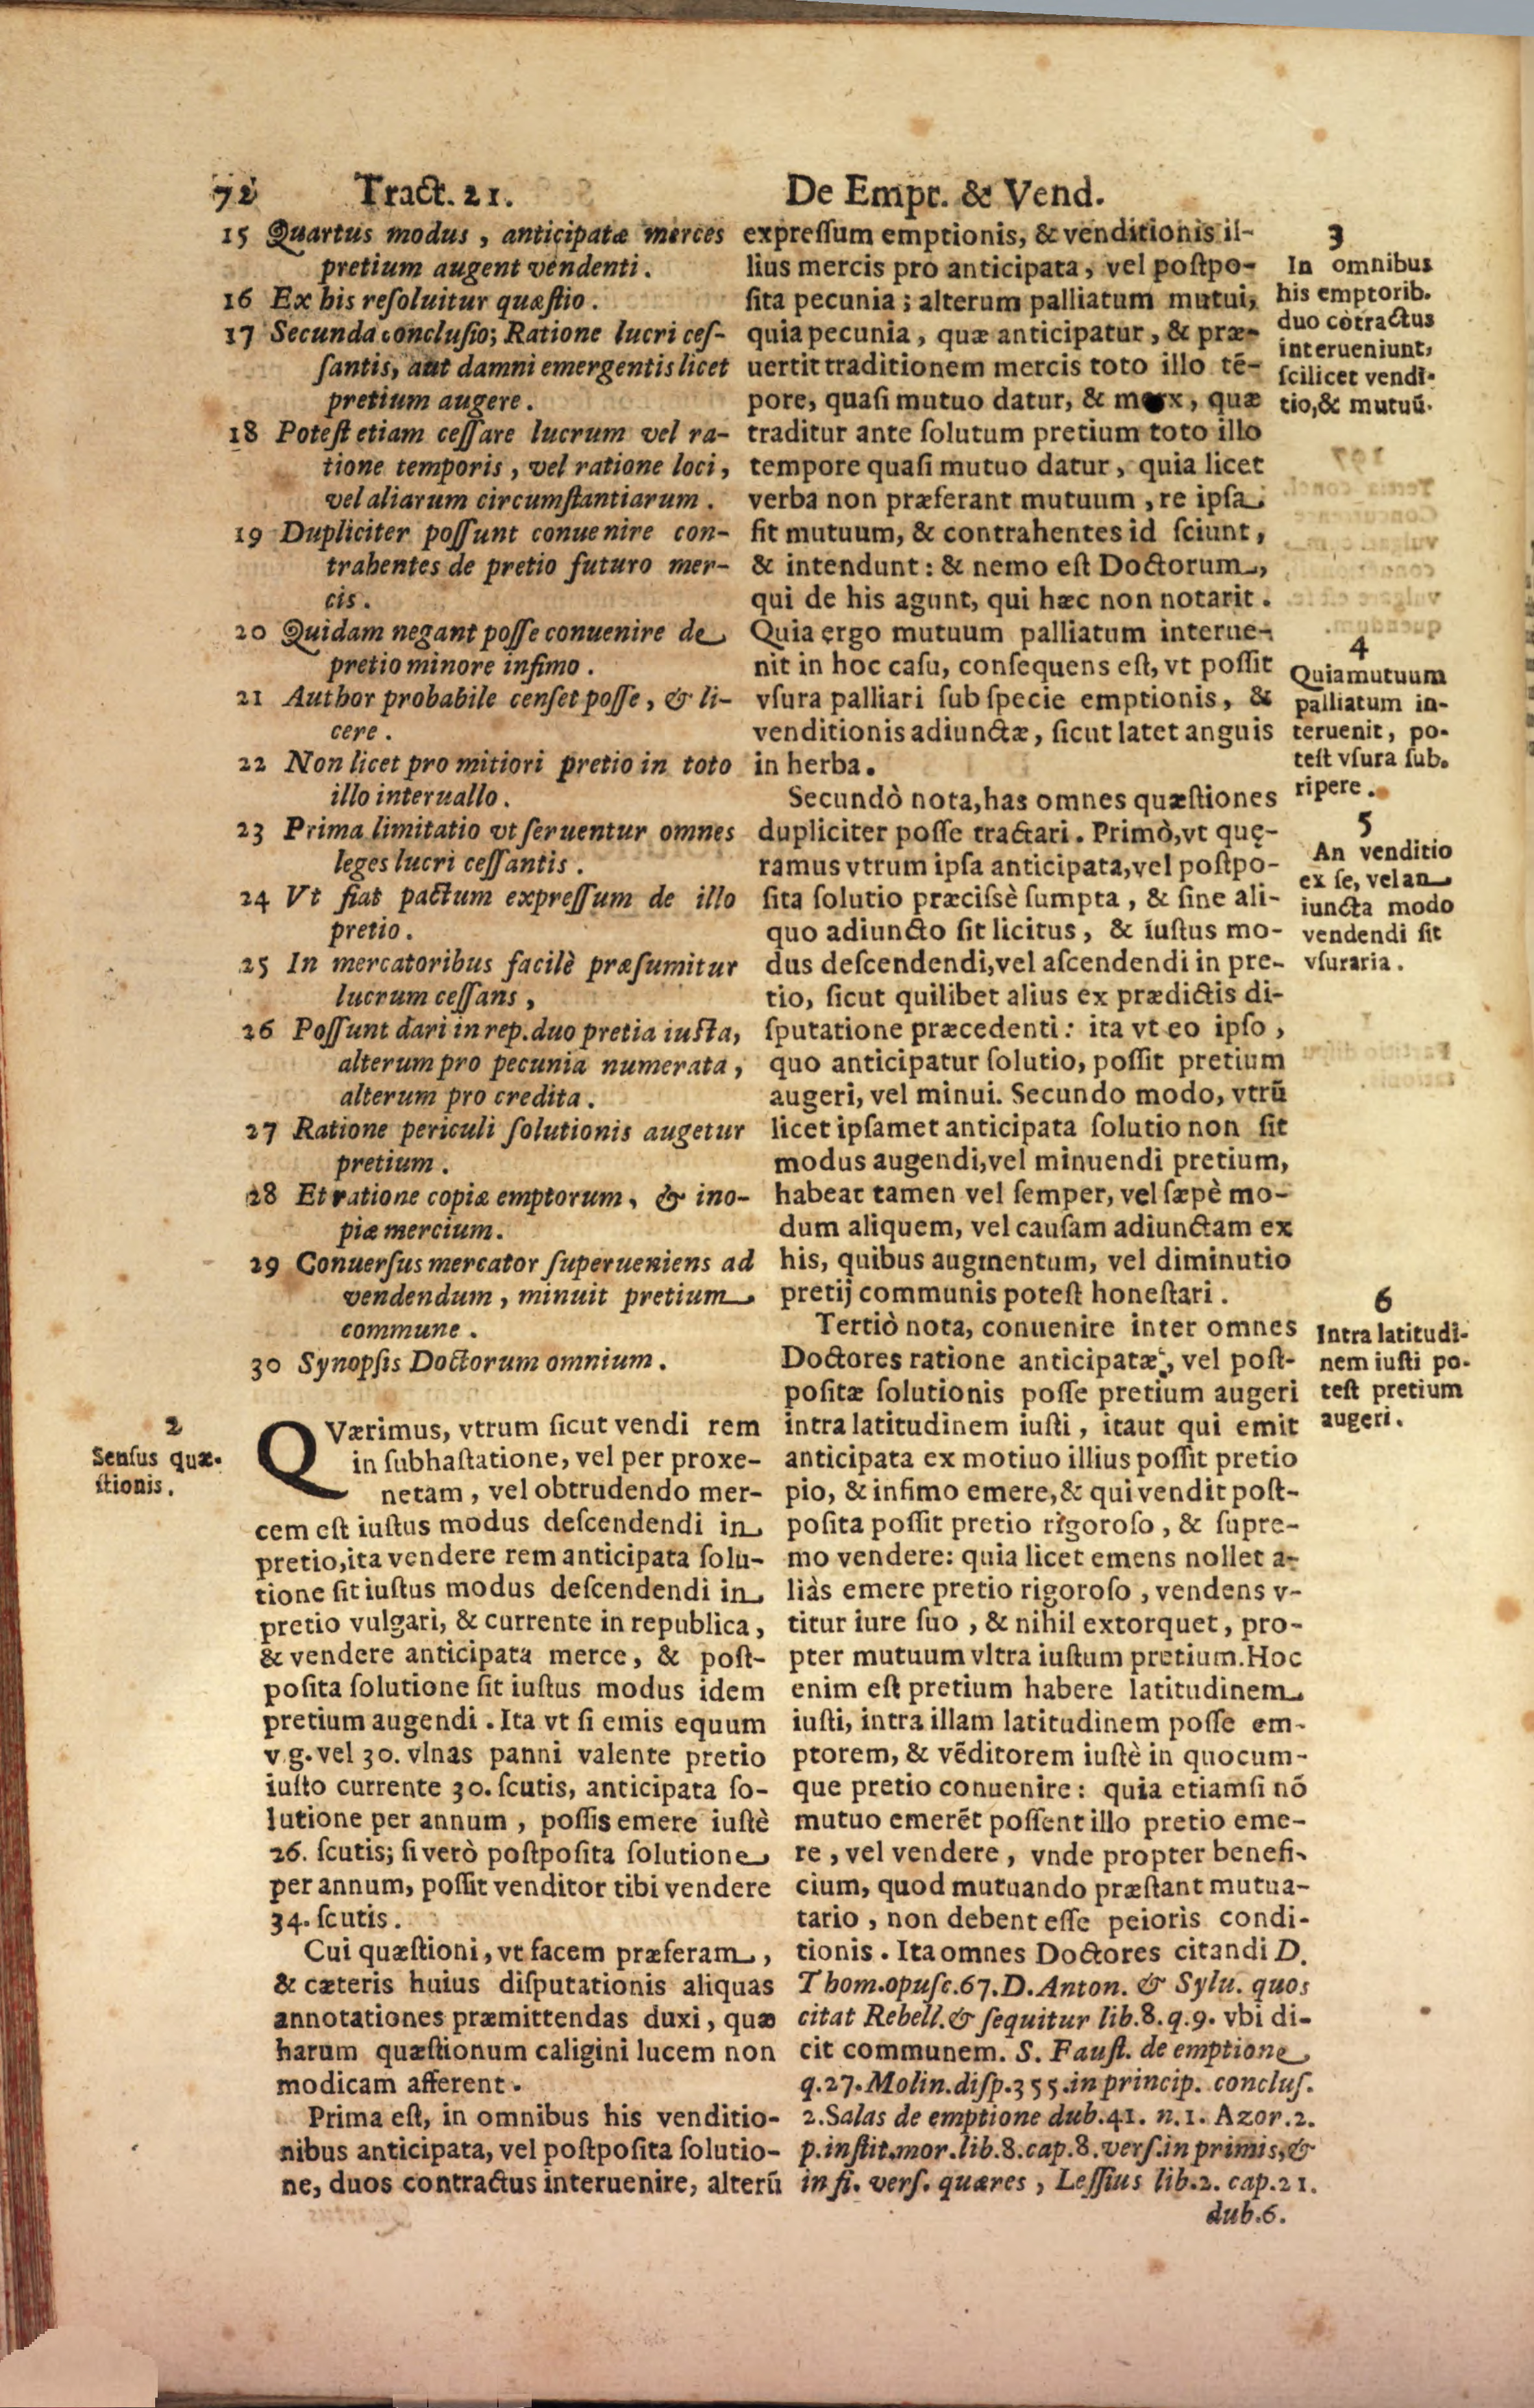 72 Tract. 21. De Empt. & Vend.
15 Quartus modus, anticipatæ merces
pretium augent vendenti.
16 Ex his reſoluitur quæſtio.
17 Secunda concluſio; Ratione lucri ceſ-
ſantis, aut damni emergentis licet
pretium augere.
18 Poteſt etiam ceſſare lucrum vel ra-
tione temporis, vel ratione loci,
vel aliarum circumſtantiarum.
19 Dupliciter poſſunt conuenire con-
trahentes de pretio futuro mer-
cis.
20 Quidam negant poſſe conuenire de
pretio minore infimo.
21 Author probabile cenſet poſſe, & li-
cere.
22 Non licet pro mitiori pretio in toto
illo interuallo.
23 Prima limitatio vt ſeruentur omnes
leges lucri ceſſantis.
24 Vt fiat pactum expreſſum de illo
pretio.
25 In mercatoribus facilè præſumitur
lucrum ceſſans,
26 Poſſunt dari in rep. duo pretia iuſta,
alterum pro pecunia numerata,
alterum pro credita.
27 Ratione periculi ſolutionis augetur
pretium.
28 Et ratione copiæ emptorum, & ino-
piæ mercium.
29 Conuerſus mercator ſuperueniens ad
vendendum, minuit pretium
commune.
30 Synopſis Doctorum omnium.
2
Senſus quæ-
ſtionis.
QVærimus, vtrum ſicut vendi rem
in ſubhaſtatione, vel per proxe-
netam, vel obtrudendo mer-
cem eſt iuſtus modus deſcendendi in
pretio, ita vendere rem anticipata ſolu-
tione ſit iuſtus modus deſcendendi in
pretio vulgari, & currente in republica,
& vendere anticipata merce, & poſt-
poſita ſolutione ſit iuſtus modus idem
pretium augendi. Ita vt ſi emis equum
v.g. vel 30. vlnas panni valente pretio
iuſto currente 30. ſcutis, anticipata ſo-
lutione per annum, poſſis emere iuſtè
26. ſcutis; ſi verò poſtpoſita ſolutione
per annum, poſſit venditor tibi vendere
34. ſcutis.
Cui quæſtioni, vt facem præferam,
& cæteris huius diſputationis aliquas
annotationes præmittendas duxi, quæ
harum quæſtionum caligini lucem non
modicam afferent.
Prima eſt, in omnibus his venditio-
nibus anticipata, vel poſtpoſita ſolutio-
ne, duos contractus interuenire, alterū
expreſſum emptionis, & venditionis il-
lius mercis pro anticipata, vel poſtpo-
ſita pecunia; alterum palliatum mutui,
quia pecunia, quæ anticipatur, & præ-
uertit traditionem mercis toto illo tē-
pore, quaſi mutuo datur, & merx, quæ
traditur ante ſolutum pretium toto illo
tempore quaſi mutuo datur, quia licet
verba non præferant mutuum, re ipſa
ſit mutuum, & contrahentes id ſciunt,
& intendunt: & nemo eſt Doctorum,
qui de his agunt, qui hæc non notarit.
Quia ergo mutuum palliatum interue-
nit in hoc caſu, conſequens eſt, vt poſſit
vſura palliari ſub ſpecie emptionis, &
venditionis adiunctæ, ſicut latet anguis
in herba.
Secundò nota, has omnes quæſtiones
dupliciter poſſe tractari. Primò, vt quę-
ramus vtrum ipſa anticipata, vel poſtpo-
ſita ſolutio præciſsè ſumpta, & ſine ali-
quo adiuncto ſit licitus, & iuſtus mo-
dus deſcendendi, vel aſcendendi in pre-
tio, ſicut quilibet alius ex prædictis di-
ſputatione præcedenti: ita vt eo ipſo,
quo anticipatur ſolutio, poſſit pretium
augeri, vel minui. Secundo modo, vtrū
licet ipſamet anticipata ſolutio non ſit
modus augendi, vel minuendi pretium,
habeat tamen vel ſemper, vel ſæpè mo-
dum aliquem, vel cauſam adiunctam ex
his, quibus augmentum, vel diminutio
pretij communis poteſt honeſtari.
Tertiò nota, conuenire inter omnes
Doctores ratione anticipatæ, vel poſt-
poſitæ ſolutionis poſſe pretium augeri
intra latitudinem iuſti, itaut qui emit
anticipata ex motiuo illius poſſit pretio
pio, & infimo emere, & qui vendit poſt-
poſita poſſit pretio rigoroſo, & ſupre-
mo vendere: quia licet emens nollet a-
liàs emere pretio rigoroſo, vendens v-
titur iure ſuo, & nihil extorquet, pro-
pter mutuum vltra iuſtum pretium. Hoc
enim eſt pretium habere latitudinem
iuſti, intra illam latitudinem poſſe em-
ptorem, & vēditorem iuſtè in quocum-
que pretio conuenire: quia etiamſi nō
mutuo emerēt poſſent illo pretio eme-
re, vel vendere, vnde propter benefi-
cium, quod mutuando præſtant mutua-
tario, non debent eſſe peioris condi-
tionis. Ita omnes Doctores citandi D.
Thom. opuſc. 67. D. Anton. & Sylu. quos
citat Rebell. & ſequitur lib. 8. q. 9. vbi di-
cit communem. S. Fauſt. de emptione
q. 27. Molin. diſp. 355. in princip. concluſ.
2. Salas de emptione dub. 41. n. 1. Azor. 2.
p. inſtit. mor. lib. 8. cap. 8. verſ. in primis, &
in fi. verſ. quæres, Leſſius lib. 2. cap. 21.
dub. 6.
3
In omnibus
his emptorib.
duo cōtractus
interueniunt,
ſcilicet vendi-
tio, & mutuū.
4
Quia mutuum
palliatum in-
teruenit, po-
teſt vſura ſub-
ripere.
5
An venditio
ex ſe, vel an
iuncta modo
vendendi ſit
vſuraria.
6
Intra latitudi-
nem iuſti po-
teſt pretium
augeri.